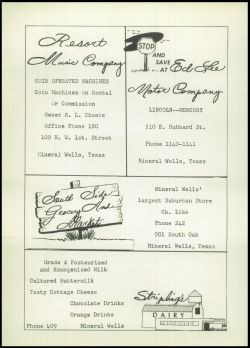 Resort
Music Company
COIN OPERATED MACHINES
Coin Machines on Rental
or Commission
Owner R. L. Choate
Office Phone 480
109 N. W. 1st. Street
Mineral Wells, Texas
STOP
AND
SAVE
AT Ed Lee
Motor Company
LINCOLN--MERCURY
510 E. Hubbard St.
Phone 1140-1141
Mineral Wells, Texas
South Side
Grocery And
Market
Mineral Wells'
Largest Suburban Store
Ch. Like
Phone 242
901 South Oak
Mineral Wells, Texas
Grade A Pasteurized
and Homogenized Milk
Cultured Buttermilk
Tasty Cottage Cheese
Chocolate Drinks
Orange Drinks
Phone 409 Mineral Wells
Stripling's
DAIRY